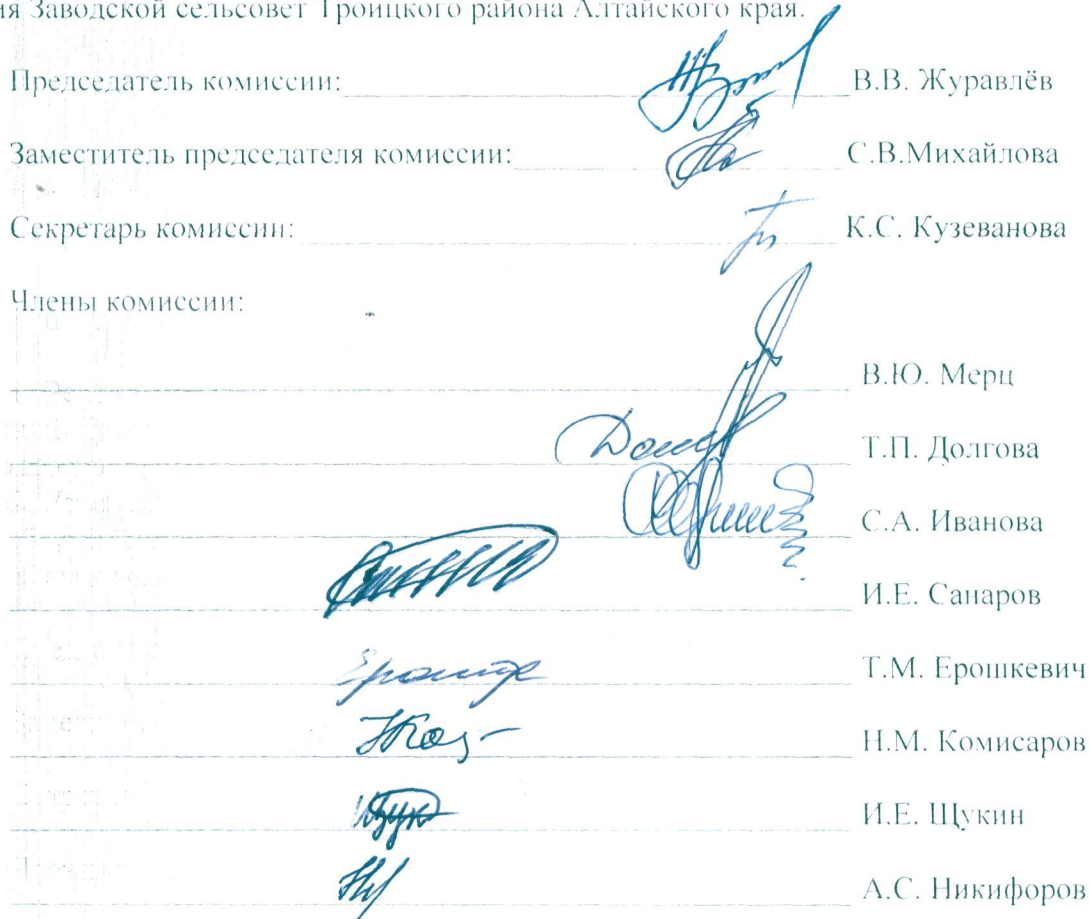 ия Заводской сельсовет Троицкого района Алтайского края.
Председатель комиссии: В.В. Журавлёв
Заместитель председателя комиссии: С.В.Михайлова
Секретарь комиссии: К.С. Кузеванова
Члены комиссии:
В.Ю. Мерц
Т.П. Долгова
С.А. Иванова
И.Е. Санаров
Т.М. Ерошкевич
Н.М. Комисаров
И.Е. Щукин
А.С. Никифоров